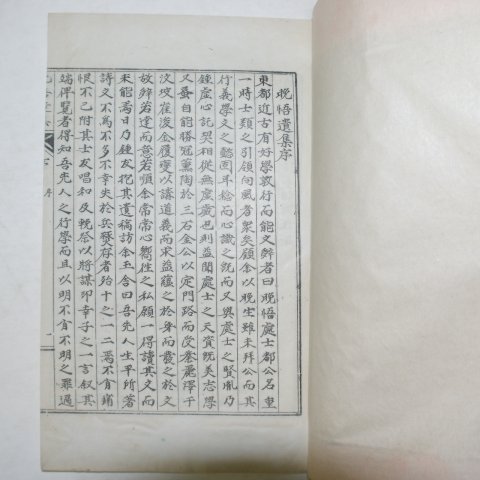 晚悟遺集序
東都近古有好學敦行而能文辭者曰晚悟處士都公名重
一時士類之引領向風者衆矣顧余以晚生雖未拜公而其
行義學文之懿固平稔而心識之旣而又與處士之賢胤乃
鍾虛心託契相從無虛歲也則益聞處士之天資旣美志學
又蚤自能勝冠薰陶於三石金公以定門路而麗澤于
汶坡崔浚金履變以講道義而求益蘊之於身而發之於文
故辭若達而意若順余常常心嚮往之私願一得讀其文而
未能焉日乃鍾友抱其遺稿訪余至舍曰吾先人生平所著
詩文不爲不多不幸失於兵燹存者殆十之一二焉不肖痛
恨不已附其士友唱和及輓祭以將謀印幸子之一言叙其
端俾覽者得知吾先人之行學而且以明不肖不明之罪過
序
一